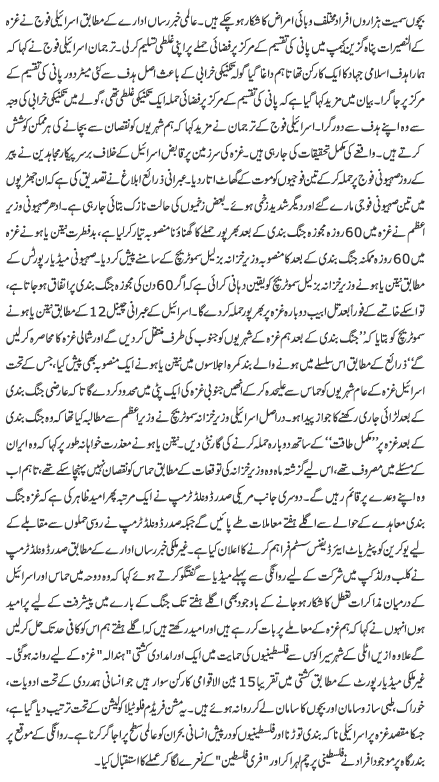 بچوں سمیت ہزاروں افراد مختلف وبائی امراض کا شکار ہو چکے ہیں۔ عالمی خبر رساں ادارے کے مطابق اسرائیلی فوج نے غزہ
کے النصیرات پناہ گزین کیمپ میں پانی کی تقسیم کے مرکز پر فضائی حملے پر اپنی غلطی تسلیم کر لی۔ ترجمان اسرائیلی فوج نے کہا کہ
ہمارا ہدف اسلامی جہاد کا ایک کارکن تھا تاہم داغا گیا گولہ تکنیکی خرابی کے باعث اصل ہدف سے کئی میٹر دور پانی کی تقسیم کے
مرکز پر جا گرا۔ بیان میں مزید کہا گیا ہے کہ پانی کی تقسیم کے مرکز پر فضائی حملہ ایک تکنیکی غلطی تھی، گولے میں تکنیکی خرابی کی وجہ
سے وہ اپنے ہدف سے دور گرا۔ اسرائیلی فوج کے ترجمان نے مزید کہا کہ ہم شہریوں کو نقصان سے بچانے کی ہر ممکن کوشش
کرتے ہیں۔ واقعے کی مکمل تحقیقات کی جا رہی ہیں۔ غزہ کی سرزمین پر قابض اسرائیل کے خلاف برسرپیکار مجاہدین نے پیر
کے روز صہیونی فوج پر حملہ کر کے تین فوجیوں کو موت کے گھاٹ اتار دیا۔ عبرانی ذرائع ابلاغ نے تصدیق کی ہے کہ ان جھڑپوں
میں تین صہیونی فوجی مارے گئے اور دیگر شدید زخمی ہوئے۔ بعض زخمیوں کی حالت نازک بتائی جا رہی ہے۔ ادھر صہیونی وزیر
اعظم نے غزہ میں 60 روزہ مجوزہ جنگ بندی کے بعد بھرپور حملے کا گھناؤنا منصوبہ تیار کر لیا ہے، بدفطرت نیتن یاہو نے غزہ
میں 60 روزہ ممکنہ جنگ بندی کے بعد کا منصوبہ وزیر خزانہ بزلیل سموٹریچ کے سامنے پیش کر دیا۔ صہیونی میڈیا رپورٹس کے
مطابق نیتن یاہو نے وزیر خزانہ بزلیل سموٹریچ کو یقین دہانی کرائی ہے کہ اگر 60 دن کی مجوزہ جنگ بندی پر اتفاق ہو جاتا ہے،
تو اسکے خاتمے کے فوراً بعد تل ابیب دوبارہ غزہ پر بھرپور حملہ کر دے گا۔ اسرائیل کے عبرانی چینل 12 کے مطابق نیتن یاہو نے
سموٹریچ کو بتایا کہ ‘‘جنگ بندی کے بعد ہم غزہ کے شہریوں کو جنوب کی طرف منتقل کر دیں گے اور شمالی غزہ کا محاصرہ کر لیں
گے’’ ذرائع کے مطابق اس سلسلے میں ہونے والے بند کمرہ اجلاسوں میں نیتن یاہو نے ایک منصوبہ بھی پیش کیا، جس کے تحت
اسرائیل غزہ کے عام شہریوں کو حماس سے علیحدہ کر کے انھیں جنوبی غزہ کی ایک پٹی میں محدود کر دے گا تاکہ عارضی جنگ بندی
کے بعد لڑائی جاری رکھنے کا جواز پیدا ہو۔ دراصل اسرائیلی وزیر خزانہ سموٹریچ نے وزیر اعظم سے مطالبہ کیا تھا کہ وہ جنگ بندی
کے بعد غزہ پر ‘‘مکمل طاقت’’ کے ساتھ دوبارہ حملہ کرنے کی گارنٹی دیں۔ نیتن یاہو نے معذرت خواہانہ طور پر کہا کہ وہ ایران
کے مسئلے میں مصروف تھے، اس لیے گزشتہ ماہ وہ وزیر خزانہ کی توقعات کے مطابق حماس کو نقصان نہیں پہنچا سکے تھے، تاہم اب
وہ اپنے وعدے پر قائم رہیں گے۔ دوسری جانب امریکی صدر ڈونلڈ ٹرمپ نے ایک مرتبہ پھر امید ظاہر کی ہے کہ غزہ جنگ
بندی معاہدے کے حوالے سے اگلے ہفتے معاملات طے پا جائیں گے جبکہ صدر ڈونلڈ ٹرمپ نے روسی حملوں سے مقابلے کے
لیے یوکرین کو پیٹریاٹ ایئر ڈیفنس سسٹم فراہم کرنے کا اعلان کیا ہے۔ غیر ملکی خبر رساں ادارے کے مطابق صدر ڈونلڈ ٹرمپ
نے کلب ورلڈ کپ میں شرکت کے لیے روانگی سے پہلے میڈیا سے گفتگو کرتے ہوئے کہا کہ وہ دوحہ میں حماس اور اسرائیل
کے درمیان مذاکرات تعطل کا شکار ہو جانے کے باوجود بھی اگلے ہفتے تک جنگ کے بارے میں پیشرفت کے لیے پر امید
ہوں انہوں نے کہا کہ ہم غزہ کے معاملے پر بات کر رہے ہیں اور امید رکھتے ہیں کہ اگلے ہفتے ہم اس کو کافی حد تک حل کر لیں
گے علاوہ ازیں اٹلی کے شہر سیراکوس سے فلسطینیوں کی حمایت میں ایک اور امدادی کشتی "ہندالہ" غزہ کے لیے روانہ ہو گئی۔
غیر ملکی میڈیا رپورٹ کے مطابق کشتی میں تقریباً 15 بین الاقوامی کارکن سوار ہیں جو انسانی ہمدردی کے تحت ادویات،
خوراک، طبی ساز و سامان اور بچوں کا سامان لے کر روانہ ہوئے ہیں۔ یہ مشن فریڈم فلوٹیلا کولیشن کے تحت ترتیب دیا گیا ہے،
جس کا مقصد غزہ پر اسرائیلی ناکہ بندی توڑنا اور فلسطینیوں کو درپیش انسانی بحران کو عالمی سطح پر اجاگر کرنا ہے۔ روانگی کے موقع پر
بندرگاہ پر موجود افراد نے فلسطینی پرچم لہرا کر اور "فری فلسطین" کے نعرے لگا کر عملے کا استقبال کیا۔